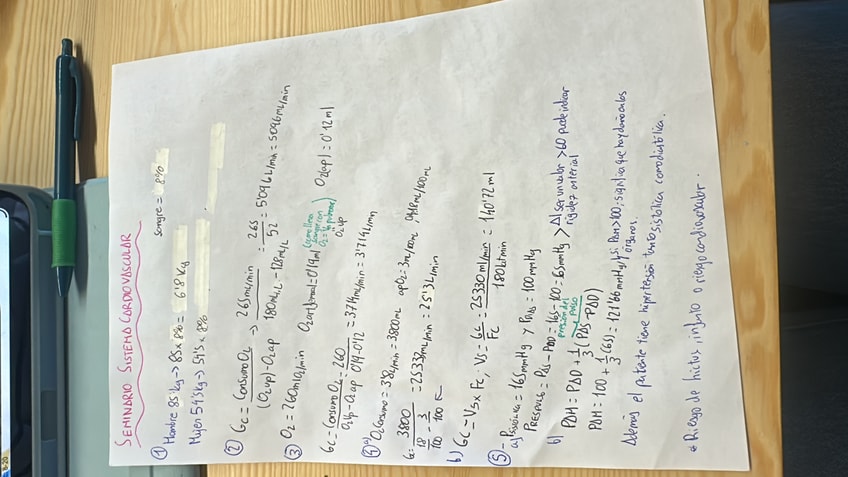 SEMINARIO SISTEMA CARDIOVASCULAR
sangre = 8%
① Hombre 85 kg → 85 x 8% = 6'8 kg
Mujer 54'5 kg → 54'5 x 8%
② Gc = Consumo O2 / (O2vp) - O2ap → 265 mL/min / 180 mL/L - 128 mL/L = 265 / 52 = 5'096 L/min = 5096 mL/min
③ O2 = 260 mlO2/min
O2ap1 = 0'12 ml
Gc = Consumo O2 / O2vp - O2ap = 260 / 0'19 - 0'12 = 3714 mL/min = 3'714 L/min
④ a) O2 Consumo = 3'8 L/min = 3800 mL
apO2 = 3 m/100 mL
G = 3800 / 18/100 - 3/100 = 25332 mL/min = 25'3 L/min
b) Gc = Vs x Fc ; Vs = Gc / Fc = 25330 ml/min / 180 lat/min = 140'72 ml
⑤ - P sistólica = 165 mmHg y PAD = 100 mmHg
a) PRESPULSO = PAS - PAD = 165 - 100 = 65 mmHg > Al ser un valor > 60 puede indicar
rigidez arterial
presión del pulso
b) PAM = PAD + 1/3 (PAS - PAD)
PAM = 100 + 1/3 (65) = 121'66 mmHg si PAM > 100; significa que hay daño en los
órganos.
Además el paciente tiene hipertensión tanto sistólica como diastólica.
* Riesgo de ictus, infarto o riesgo cardiovascular.